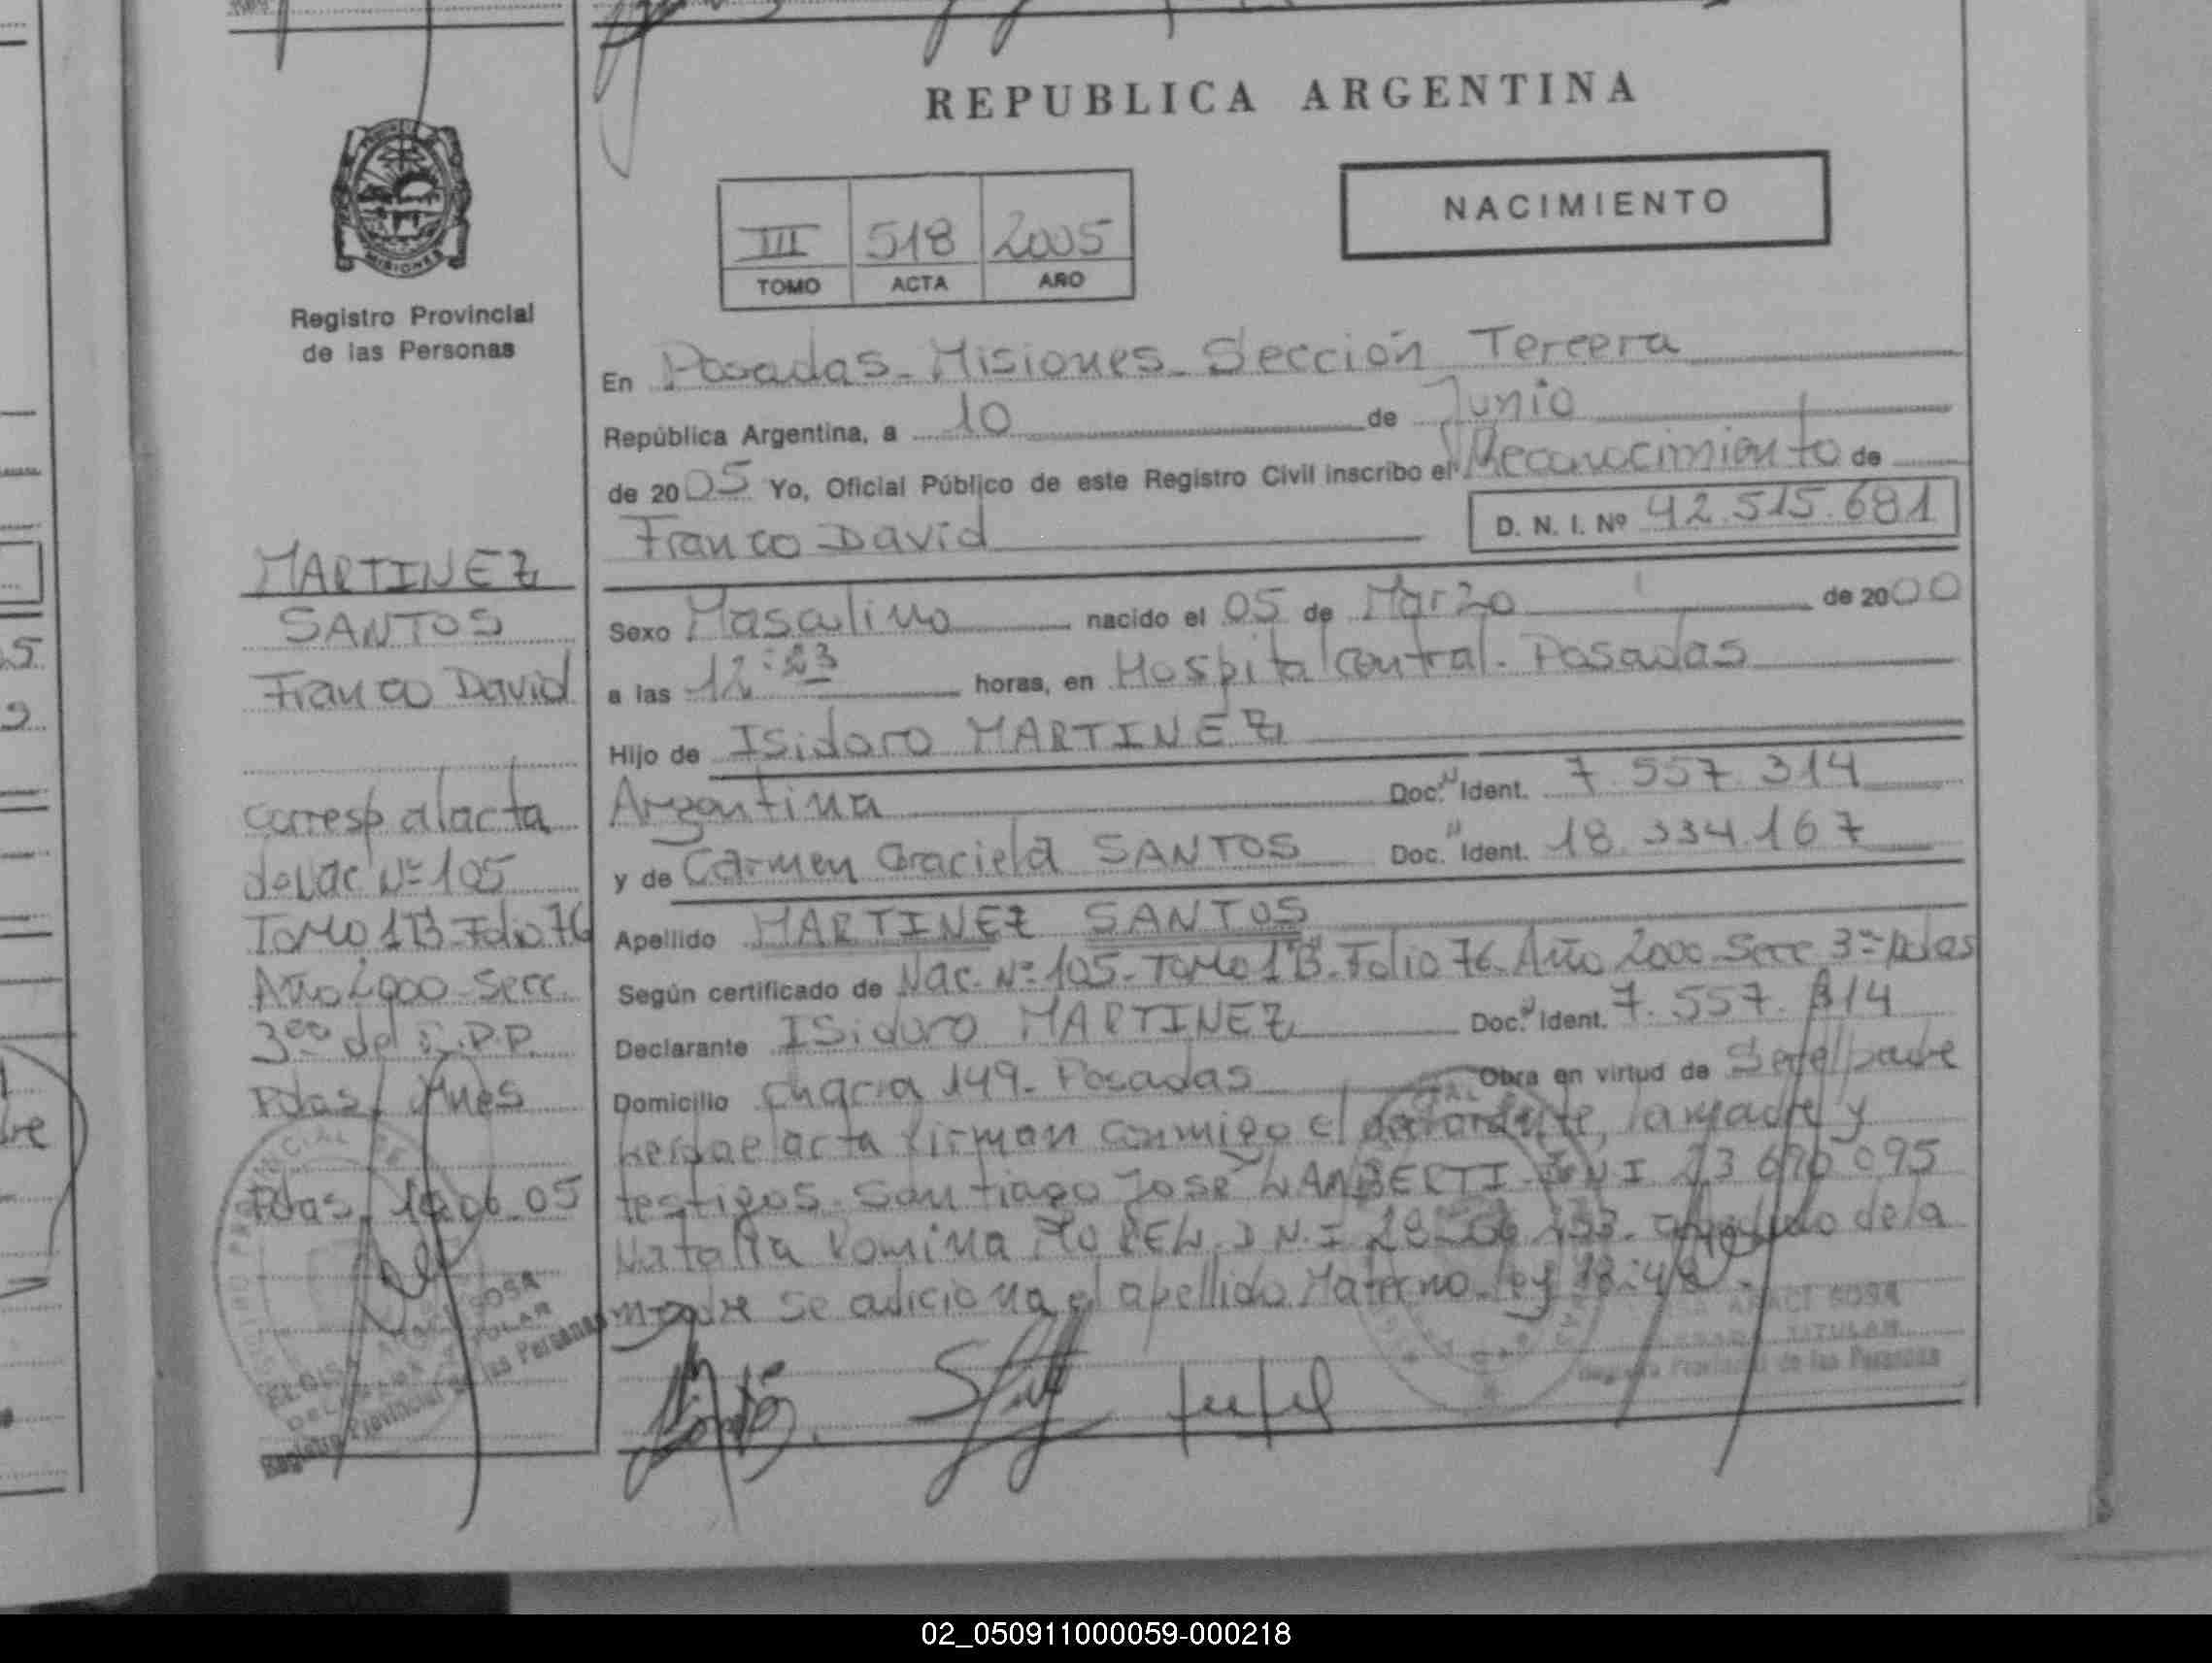 REPUBLICA ARGENTINA
NACIMIENTO
III 518 2005
TOMO ACTA AÑO
MISIONES
Registro Provincial
de las Personas
MARTINEZ
SANTOS
Franco David
corresp al acta
de Nac Nº 105
Tomo 1B Folio 76
Año 2000 - Secc.
3ra del R.P.P.
Pdas Mnes
Pdas 10.06.05
En Posadas - Misiones - Sección Tercera
República Argentina, a 10 de Junio
de 2005 Yo, Oficial Público de este Registro Civil inscribo el Reconocimiento de
Franco David D. N. I. Nº 42.515.681
Sexo Masculino nacido el 05 de Marzo de 2000
a las 12:23 horas, en Hospital Central - Posadas
Hijo de Isidoro MARTINEZ
Argentina Doc. Ident. 7.557.314
y de Carmen Graciela SANTOS Doc. Ident. 18.334.167
Apellido MARTINEZ SANTOS
Según certificado de Nac. Nº 105 - Tomo 1B - Folio 76 Año 2000 - Secc 3ra Pdas
Declarante Isidoro MARTINEZ Doc. Ident. 7.557.314
Domicilio 149 - Posadas Obra en virtud de Ser el padre
acta firman conmigo el declarante, la madre y
testigos - Santiago José LAMBERTI DNI 23 690 095
Natalia Romina MOREL D.N.I de la
madre se adiciona el apellido Materno - ley
ARACI SOSA
TITULAR
Registro Provincial de las Personas
ELOISA ARACI SOSA
DELEGADA TITULAR
Registro Provincial de las Personas
02_050911000059-000218